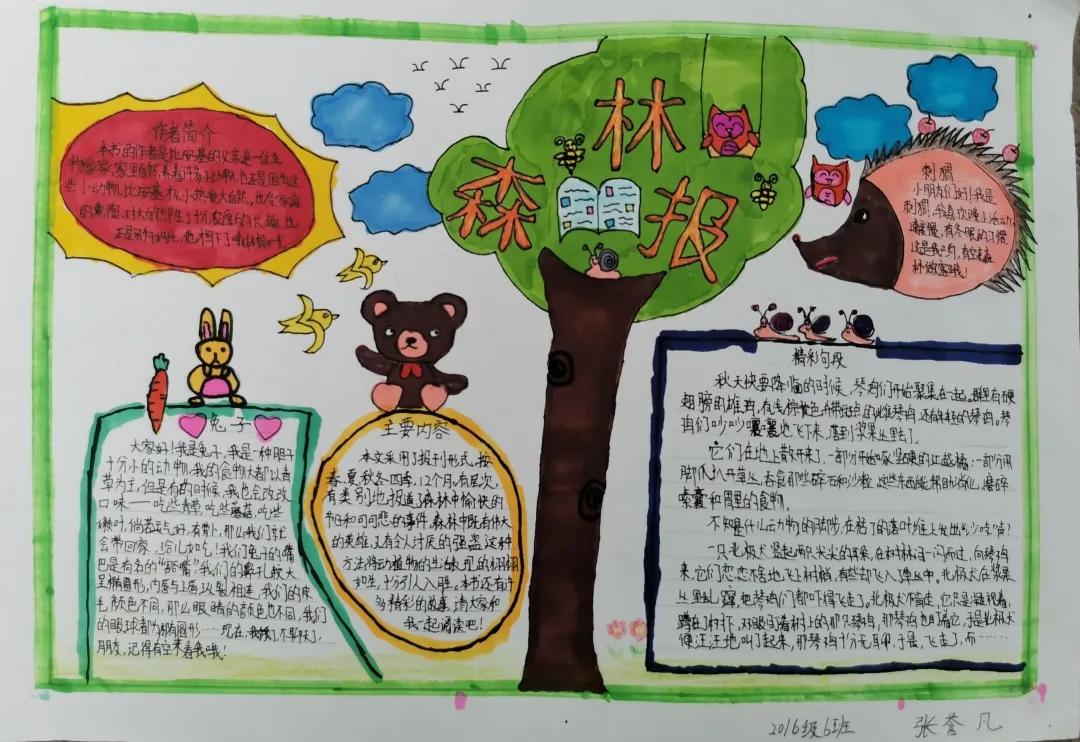 森林报
作者简介
本书的作者是比安基的父亲是一位生
物学家,家里
些小动物,比安基从小热爱大自然,也受家庭
的熏陶,对大自然产生了十分浓厚的兴趣,也
正是
刺猬
小朋友们好!我是
刺猬,我喜欢晚上活动,
有冬眠的习惯,
这是我哟,有空来森
林做客哦!
兔子
大家好!我是兔子,我是一种胆子
十分小的动物,我的食物大都以青
草为主,但是有的时候,我也会改改
口味——吃些青草,吃些蘑菇,吃些
嫩叶,倘若
会带回家,给儿如吃!我们兔子的嘴
巴是有名的"豁嘴"我们的鼻孔较大
呈椭圆形,内唇与上唇纵裂相连,我们的皮
毛颜色不同,那么眼睛的颜色也不同,我们
的眼球都为椭圆形……现在,我饿了,不聊了,
朋友,记得有空来看我哦!
主要内容
本文采用了报刊形式,按
春、夏秋冬四季,12个月,有层次,
有类别地报道了森林中愉快的
节日和可可悲的事件,森林中既有伟大
的英雄,又有令人讨厌的强盗,这种
方法将动植物的生活表现的栩栩
如生,十分引人入胜。本书还有许
多精彩的故事,请大家和
我一起阅读吧!
精彩句段
秋天快要降临的时候,琴鸡们开始聚集在一起。群里有硬
翅膀的雄鸡,有浅棕黄色的带斑点的雌琴鸡,还有年轻的琴鸡。琴
鸡们吵吵嚷嚷地飞下来,落到浆果丛里去了。
它们在地上散开来了,一部分开始啄坚硬的红越橘;一部分用
脚爪扒开草丛,吞食那些碎石和沙粒,这些东西能帮助消化,磨碎
嗉囊和胃里的食物。
不知是什么动物的脚步,在枯了的落叶堆上发出沙沙声?
一只北极犬竖起两只尖尖的耳朵,在树林间一闪而过,向琴鸡
来,它们恋恋不舍地飞上树梢,有些却飞入草丛中,北极犬在浆果
丛里乱蹿,把琴鸡们都吓得飞走了。北极犬不留走,它只是凝视着,
蹲在树下,双眼盯着树上的那只琴鸡,那琴鸡也盯着它,于是北极犬
便汪汪地叫了起来,那琴鸡十分无耳卯,于是,飞走了,而……
2016级6班
张誉凡